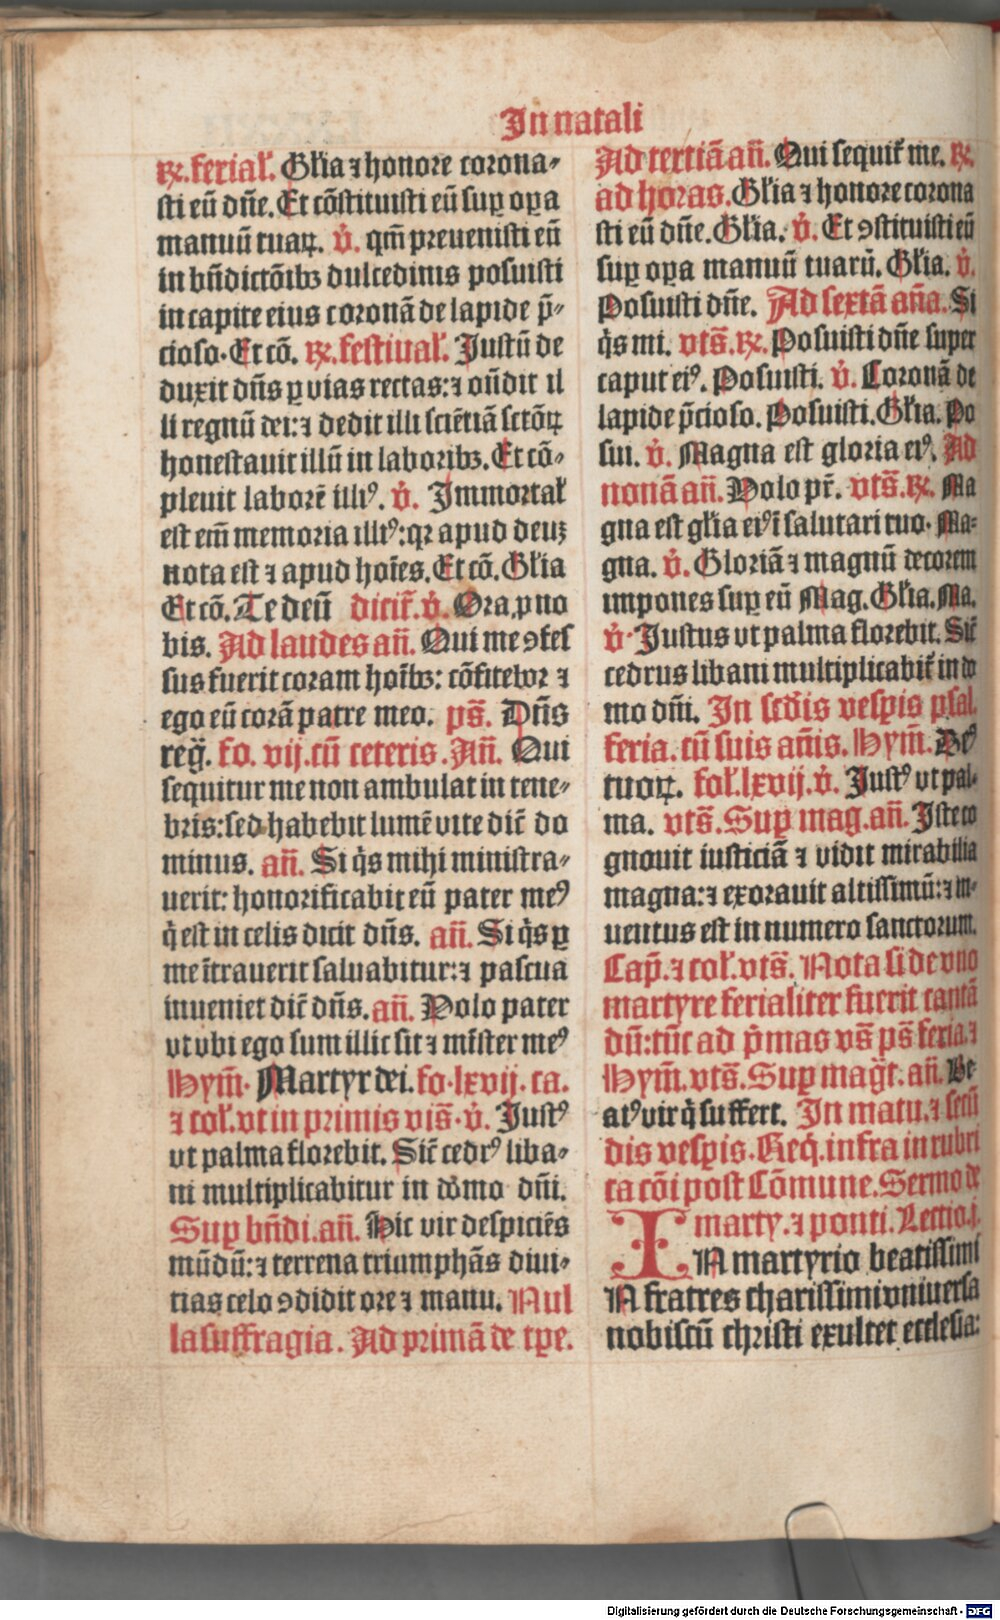 In natali
℞. ferial̄. Gl̄ia ⁊ honore corona⸗
sti eū dn̄e. Et cōstituisti eū suꝑ oꝑa
manuū tuaꝝ. v̇. qm̄ preuenisti eū
in bn̄dictōibꝫ dulcedinis posuisti
in capite eius coronā de lapide p̄⸗
cioso. Et cō. ℞. festiual̄. Justū de
duxit dn̄s ꝑ vias rectas: ⁊ on̄dit il
li regnū dei: ⁊ dedit illi sciētiā sctōꝝ
honestauit illū in laboribꝫ. Et cō⸗
pleuit laborē illiꝰ. v̇. Immortal̄
est em̄ memoria illiꝰ: qꝛ apud deuꝫ
nota est ⁊ apud hoīes. Et cō. Gl̄ia
Et cō. Te deū dicit̄. v̇. Ora ꝓ no
bis. Ad laudes an̄. Qui me ꝯfes
sus fuerit coram hoībꝫ: cōfitebor ⁊
ego eū corā patre meo. ps̄. Dn̄s
reḡ. fo. vij. cū ceteris. An̄. Qui
sequitur me non ambulat in tene⸗
bris: sed habebit lumē vite dic̄ do
minus. an̄. Si q̇s mihi ministra⸗
uerit: honorificabit eū pater meꝰ
q̇ est in celis dicit dn̄s. an̄. Si q̇s ꝑ
me ītrauerit saluabitur: ⁊ pascua
inueniet dic̄ dn̄s. an̄. Volo pater
vt vbi ego sum illic sit ⁊ mīster meꝰ
Hym̄. Martyr dei. fo. lxvij. ca.
⁊ col̄. vt in primis vis̄. v̇. Justꝰ
vt palma florebit. Sic̄ cedrꝰ liba⸗
ni multiplicabitur in domo dn̄i.
Suꝑ bn̄di. an̄. Hic vir despiciēs
mūdū: ⁊ terrena triumphās diui⸗
tias celo ꝯdidit ore ⁊ manu. Nul
la suffragia. Ad primā de tꝑe.
Ad tertiā an̄. Qui sequit̄ me. ℞.
ad horas. Gl̄ia ⁊ honore corona
sti eū dn̄e. Gl̄ia. v̇. Et ꝯstituisti eū
suꝑ oꝑa manuū tuarū. Gl̄ia. v̇.
Posuisti dn̄e. Ad sextā an̄a. Si
q̇s mi. vts̄. ℞. Posuisti dn̄e super
caput eiꝰ. Posuisti. v̇. Coronā de
lapide p̄cioso. Posuisti. Gl̄ia. Po
sui. v̇. Magna est gloria eiꝰ. Ad
nonā an̄. Volo pr̄. vts̄. ℞. Ma
gna est gl̄ia eiꝰ ī salutari tuo. Ma⸗
gna. v̇. Gloriā ⁊ magnū decorem
impones suꝑ eū Mag. Gl̄ia. Ma.
v̇. Justus vt palma florebit. Sic̄
cedrus libani multiplicabit̄ in do
mo dn̄i. In scd̄is vesꝑis psal.
feria. cū suis an̄is. Hym̄. Deꝰ
tuoꝝ. fol̄. lxvij. v̇. Justꝰ vt pal⸗
ma. vts̄. Suꝑ mag. an̄. Iste co
gnouit iusticiā ⁊ vidit mirabilia
magna: ⁊ exorauit altissimū: ⁊ in⸗
uentus est in numero sanctorum.
Cap̄. ⁊ col̄. vts̄. Nota si de vno
martyre ferialiter fuerit cantā
dū: tūc ad p̄mas vs̄ ps̄ feria. ⁊
Hym̄. vts̄. Suꝑ maḡt. an̄. Be⸗
atꝰ vir q̇ suffert. In matu. ⁊ secū
dis vesꝑis. Req̇. infra in rubri
ca cōi post Cōmune. Sermo de
marty. ⁊ ponti. Lectio. j.
IN martyrio beatissimi
N fratres charissimi vniuersa
nobiscū christi exultet ecclesia:
Digitalisierung gefördert durch die Deutsche Forschungsgemeinschaft - DFG